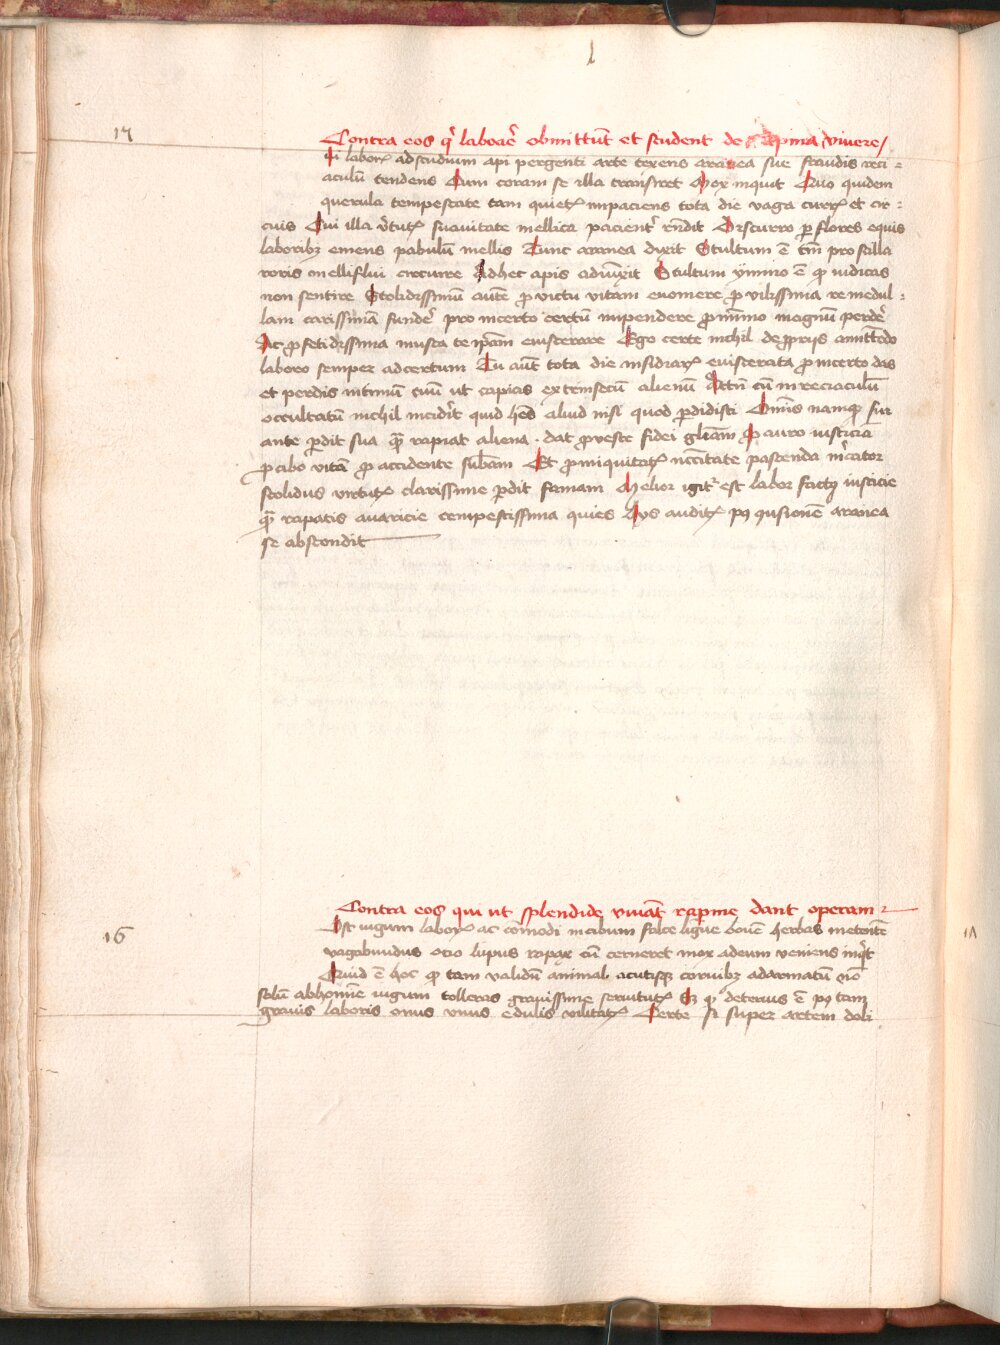 l
17
Contra eos qͥ laborē obmittūt et student de rapina viuere /
In laborꝫ ad studium api pergenti arte texens aranea sue fraudis reti =
aculū tendens Cum coram se illa transiret Mox inquit Quo quidem
querula tempestate tam quietꝫ impaciens tota die vaga currꝫ et cir =
cuis Cui illa v̄tutꝫ suauitate mellica pacient̄ rn̄dit Discurro ꝑ flores equis
laboribꝫ emens pabulū mellis Tunc aranea dixit Stultum ē tm̄ pro stilla
roris melliflui circuire Ad hec apis adiunxit Stultum ymmo ē qͦ iudicas
non sentire Stolidissimū autē ꝓ victu vitam euomere ꝓ vilissima re medul =
lam carissimā funderͤ pro incerto certū impendere ꝓ minimo magnū perdͤr
Ac ꝓ fetidissima musca te ip̄am euiscerare Ego certe nichil de ꝓprijs amittēdo
laboro semper ad certum Tu aūt tota die insidiarꝫ euiscerata ꝓ incerto das
et perdis intimū tuū ut capias extrinsecū alienū Attn̄ cū in reciaculū
occultatū nichil inciderit quid hēs aliud nisi quod ꝑdidisti Omīs namqꝫ fur
ante ꝑdit sua qꝫ rapiat aliena . dat ꝓ veste fidei gl̄iam ꝓ auro iusticiā
ꝓ cibo vitā ꝓ accidente sub̄am Et ꝓ iniquitatꝫ nccītate pascenda m̄cator
stolidus virtutꝫ clarissime ꝑdit famam Melior igitͬ est labor factꝯ iusticie
qꝫ rapatis auaricie tempestissima quies Hijs auditꝫ pꝯ ꝯfusionē aranea
se abscondit
16
Contra eos qui ut splendide viuāt rapine dant operam
Post iugum laborꝫ ac cōmodi in cibum falce ligue bouē herbas metentē
vagabundus ocio lupus rapax cū cerneret mox ad eum veniens inqͥt
Quid ē hoc qͦ tam validū animal acutisqꝫ cornibꝫ ad armatū nō
solū ab homīne iugum tolleras grauissime seruitutꝫ Et qͦ deterius ē pꝯ tam
grauis laboris onus vnus edulis vilitatꝫ Certe si super artem doli